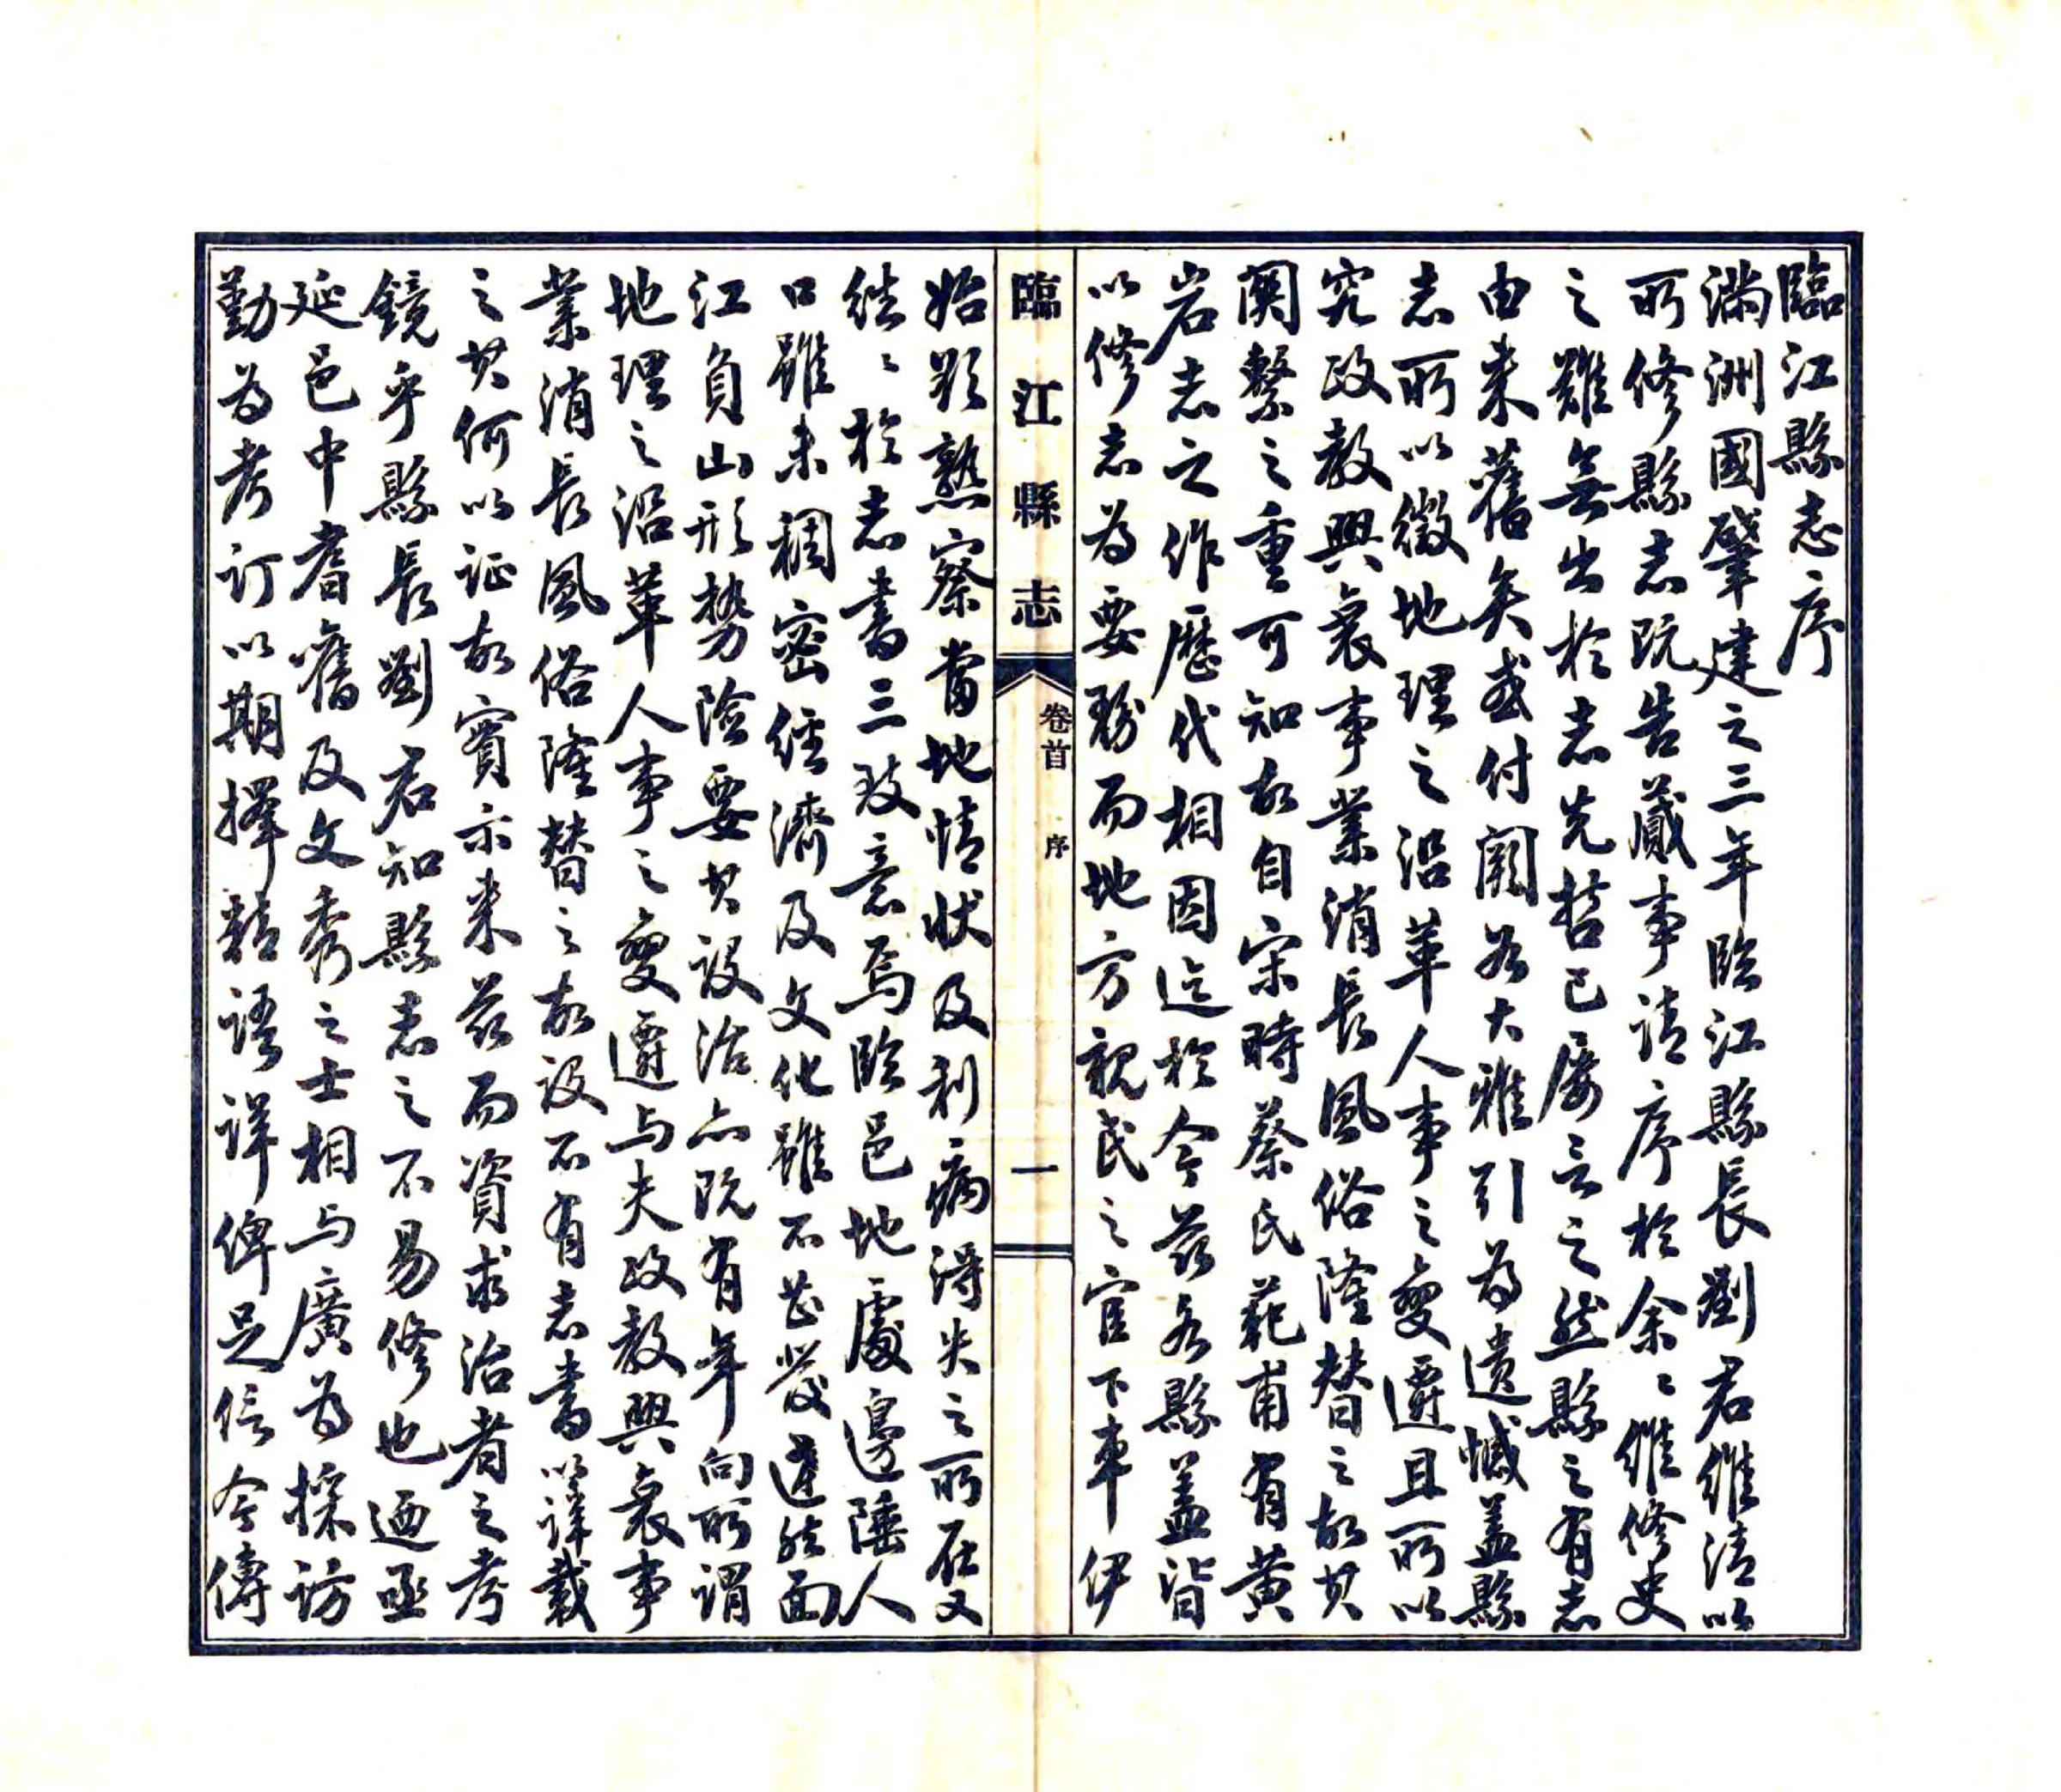 臨江縣志序
滿洲國肇建之三年臨江縣長劉君維清以
所修縣志既告蕆事請序於余余維修史
之難無出於志先哲已屢言之然縣之有志
由來舊矣或付闕如大雅引為遺憾蓋縣
志所以徵地理之沿革人事之變遷且所以
究政教興衰事業消長風俗隆替之故其
關繫之重可知故自宋時蔡氏範甫有黃
岩志之作歷代相因迄於今茲各縣蓋皆
以修志為要務而地方親民之官下車伊
臨江縣志
卷首
序
一
始欲熟察當地情狀及利病得失之所在又
往往於志書三致意焉臨邑地處邊陲人
口雖未稠密經濟及文化雖不甚發達然面
江負山形勢險要其設治亦既有年向所謂
地理之沿革人事之變遷与夫政教興衰事
業消長風俗隆替之故設不有志書以詳載
之其何以証故實示來茲而資求治者之考
鏡乎縣長劉君知縣志之不易修也迺亟
延邑中耆舊及文秀之士相与廣為採訪
勤為考訂以期擇精語詳俾足信今傳